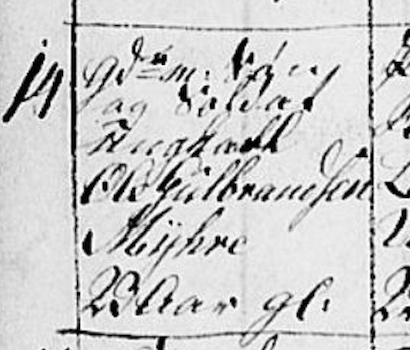 14 gdm. Søn
og Soldat
Ungkarl
Ole Gulbrandsen
Myhre
23 Aar gl.